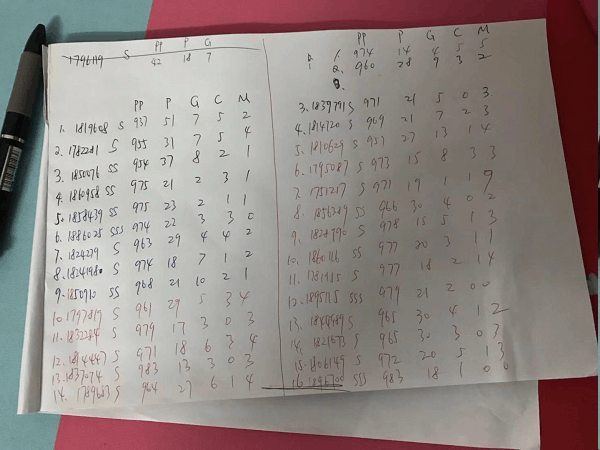 PP P G
1796119 S 42 18 7
PP P G C M
1. 1819608 S 937 51 7 5 2
2. 1782281 S 955 31 7 5 4
3. 1850076 SS 954 37 8 2 1
4. 1860958 SS 975 21 2 3 1
5. 1858439 SS 975 23 2 1 1
6. 1886025 SSS 974 22 3 3 0
7. 1824279 S 963 29 4 4 2
8. 1834198 S 974 18 7 1 2
9. 1850910 SS 968 21 10 2 1
10. 1797819 S 961 29 5 3 4
11. 1832284 S 979 17 3 0 3
12. 1814447 S 971 18 6 3 4
13. 1837074 S 983 13 3 0 3
14. 1789683 S 964 27 6 1 4
PP P G C M
1. 974 14 4 5 5
2. 960 28 9 3 2
3.
3. 1839791 S 971 21 5 0 3
4. 1814720 S 969 21 7 2 3
5. 1810629 S 957 27 13 1 4
6. 1795087 S 973 15 8 3 3
7. 1751217 S 971 19 1 1 9
8. 1856389 SS 966 30 4 0 2
9. 1828790 S 978 15 5 1 3
10. 1860116 SS 977 20 3 1 1
11. 1781985 S 977 18 2 1 4
12. 1895715 SSS 979 21 2 0 0
13. S 965 30 4 1 2
14. 1821673 S 965 30 3 0 3
15. 1806149 S 972 20 5 1 3
16. 1895700 SSS 983 18 1 0 0